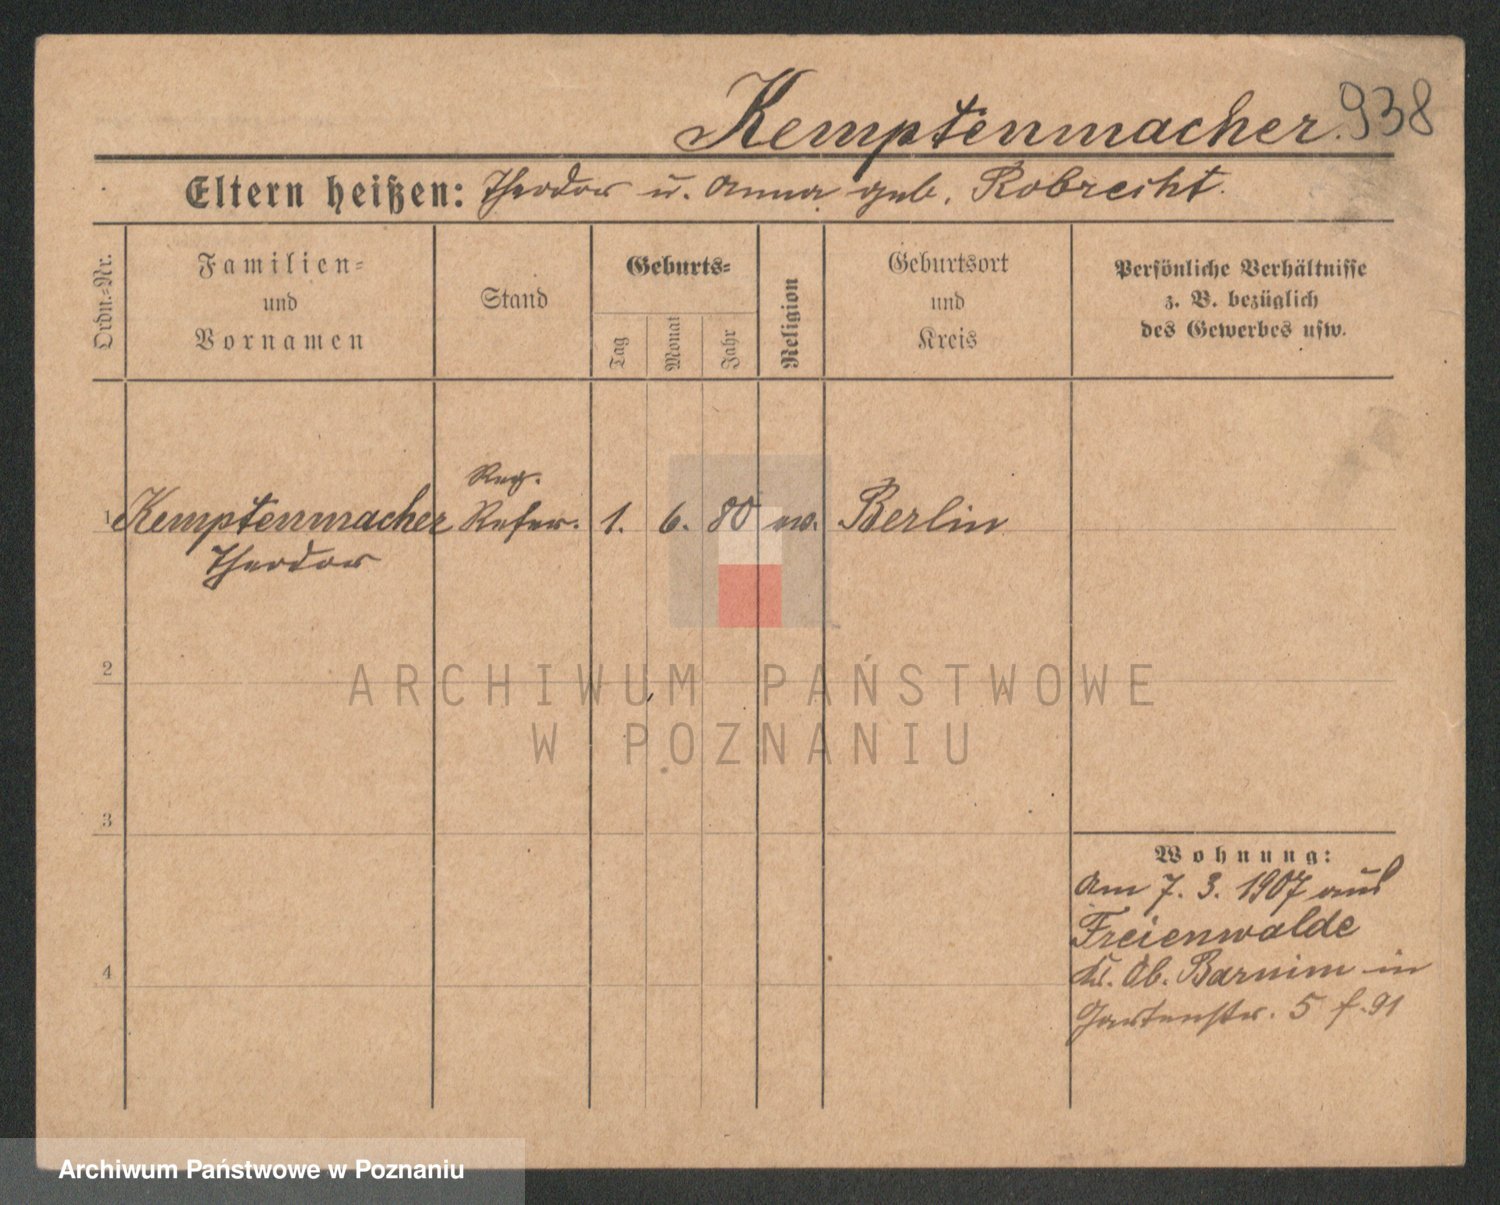 Kemptenmacher. 938
Eltern heißen: Theodor u. Anna geb. Robrecht.
Ordn.-Nr.
Familien-
und
Vornamen
Stand
Geburts-
Tag
Monat
Jahr
Religion
Geburtsort
und
Kreis
Persönliche Verhältnisse
z. B. bezüglich
des Gewerbes usw.
Reg.
1 Kemptenmacher Refer. 1. 6. 80 ev. Berlin
Theodor
2
ARCHIWUM PAŃSTWOWE
W POZNANIU
3
Wohnung:
Am 7. 3. 1907 aus
Freienwalde
Kr. Ob. Barnim in
4
Gartenstr. 5 f. 91
Archiwum Państwowe w Poznaniu